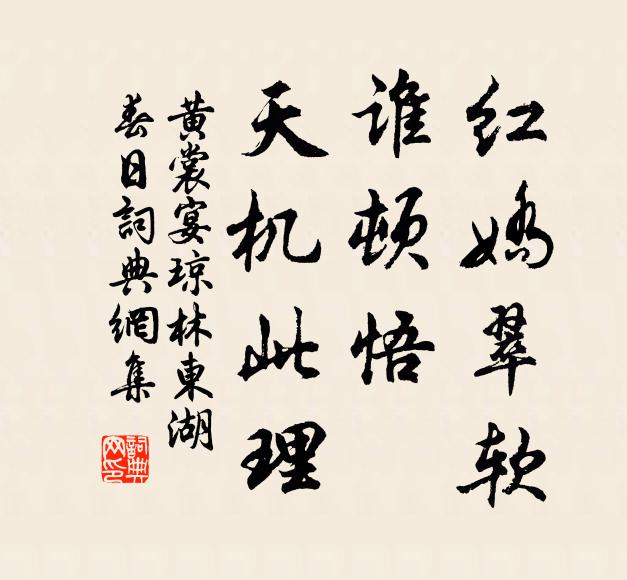 红娇翠软
谁顿悟
天机此理
黄裳宴琼林東湖
春日詞典網集
詞典网印